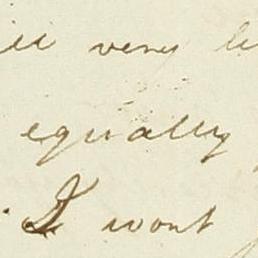 very
equally
I wont